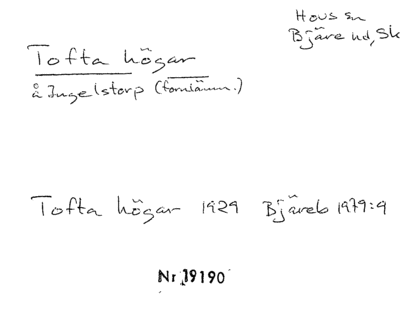 Hovs sn
Bjäre hd, Sk
Tofta högar
å Ingelstorp (fornlämn.)
Tofta högar 1929 Bjäreb 1979:9
Nr 19190